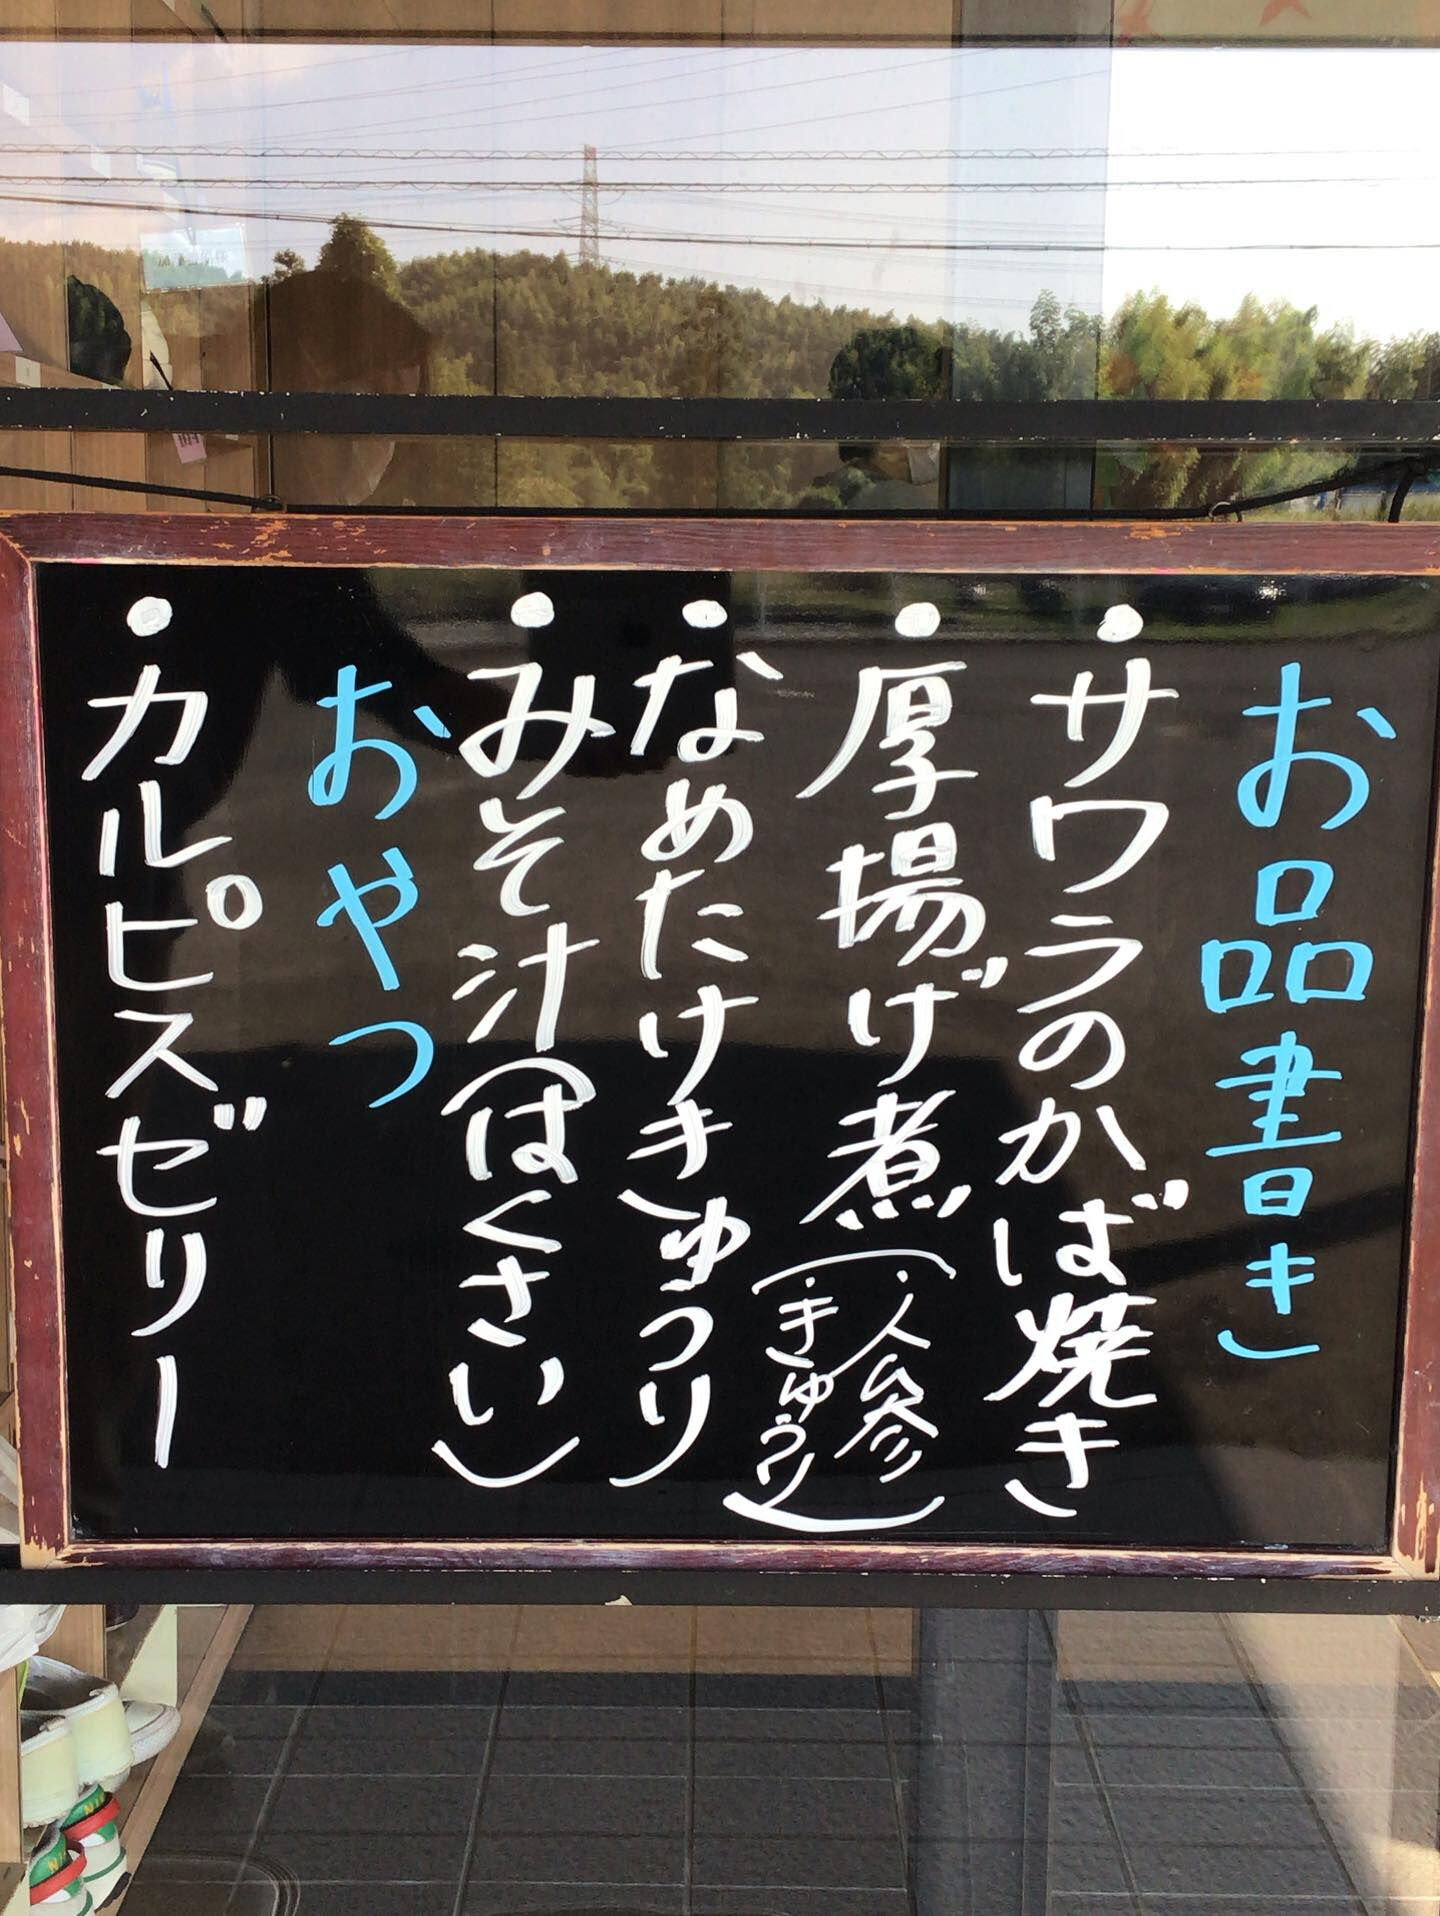 お品書き
・サワラのかば焼き
・厚揚げ煮(・人参
・きゅうり)
・なめたけきゅうり
・みそ汁(はくさい)
おやつ
・カルピスゼリー